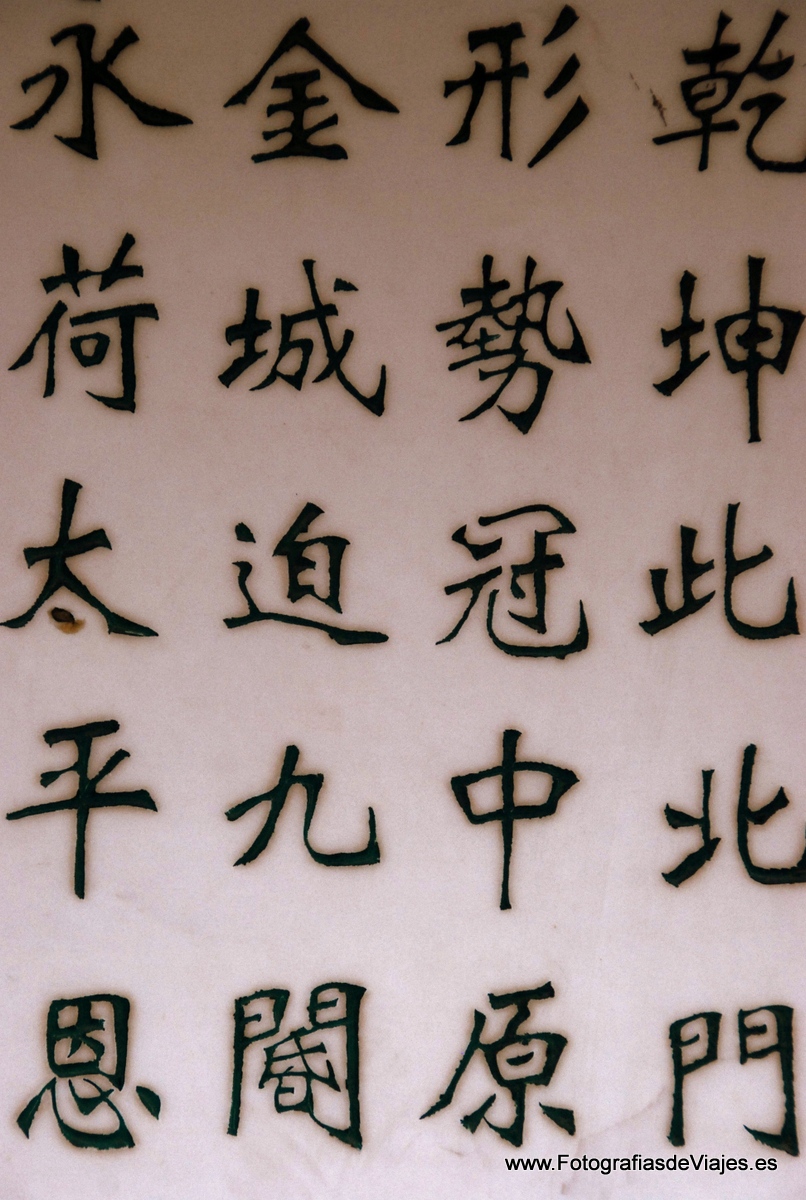 乾坤此北門
形勢冠中原
金城迫九閽
永荷太平恩
www.FotografiasdeViajes.es